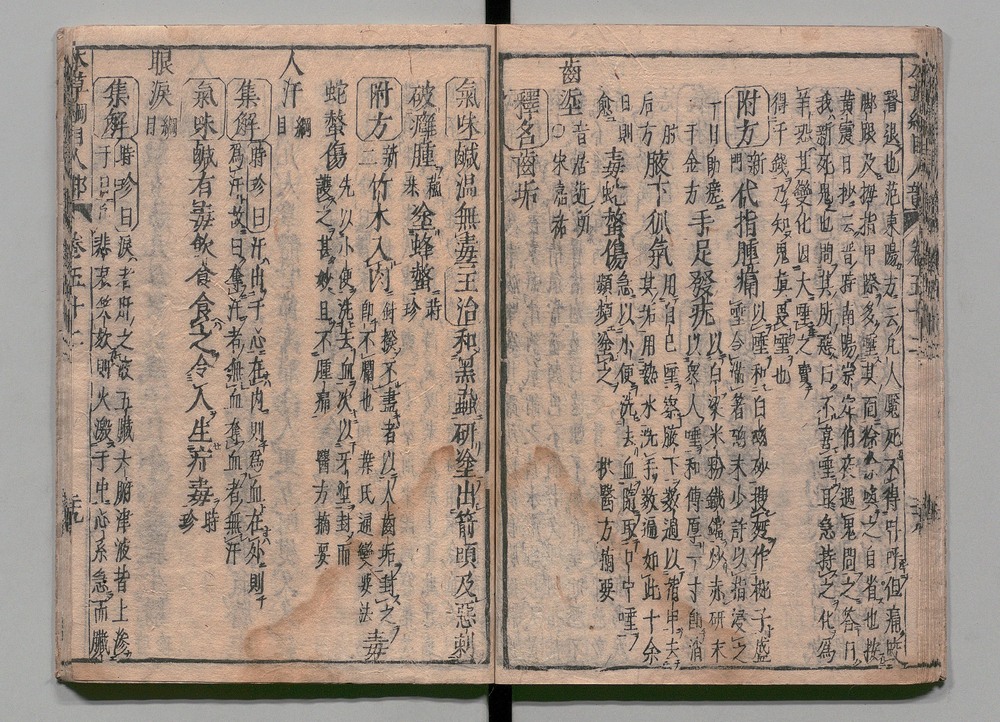 醫退也范東陽方云凡人魘死不得叫呼但痛咬
脚跟及拇指甲際多唾其面徐徐喚之自省也按
黃震日抄云晉時南陽宗定伯夜遇鬼問之答曰
我新死鬼也問其所惡曰不喜唾耳急持之化爲
羊恐其變化因大唾之賣
得千錢乃知鬼眞畏唾也
附方 新 代指腫痛 以唾和白硇砂搜麪作梡子盛
唾令滿著硇末少許以指浸之
一日即瘥 手足發疣 以白粱米粉鐵鐺炒赤研末
千金方 以衆人唾和傅厚一寸即消
肘 腋下狐氣 用自己唾擦腋下數過以指甲去
后方 其垢用熱水洗手數過如此十余
日則 毒蛇螫傷 急以小便洗去血隨取口中唾
愈 頻頻塗之 醫方摘要
齒垽 音居近所
宋嘉祐
釋名 齒垢
氣味 鹹温無毒 主治 和黑蝨研塗出箭頭及惡刺
破癰腫 藏 塗蜂螫 時
珍
附方 新 竹木入肉 鍼撥不盡者以人齒垢封之
二 即不爛也 葉氏通變要法 毒
蛇螫傷 先以小便洗去血次以牙垽封而
護之甚妙且不腫痛 醫方摘要
人汗 綱
目
集解 時珍曰汗出于心在内則爲血在外則
爲汗故曰奪汗者無血奪血者無汗
氣味 鹹有毒飲食食之令人生疔毒 時
珍
眼淚 綱
目
集解 時珍曰淚者肝之液五臟六腑津液皆上滲
于目凡悲哀笑欬則火激于中心系急而臟